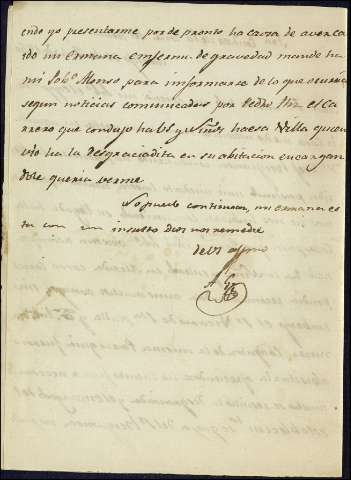 endo yo presentarme por de pronto ha causa de aver ca
ido mi ermana enferma de gravedad mande ha
mi Sobº Alonso para informarse de lo que ocurria
segun noticias comunicadas por Pedro el Ca
rrero que condujo ha Vs y Señora ha esa Villa quien
vio ha la desgraciadita en su abitacion encargan
dole queria verme
No puedo continuar, mi ermana es
ta con un insulto Dios nos remedie
de Vs affmo